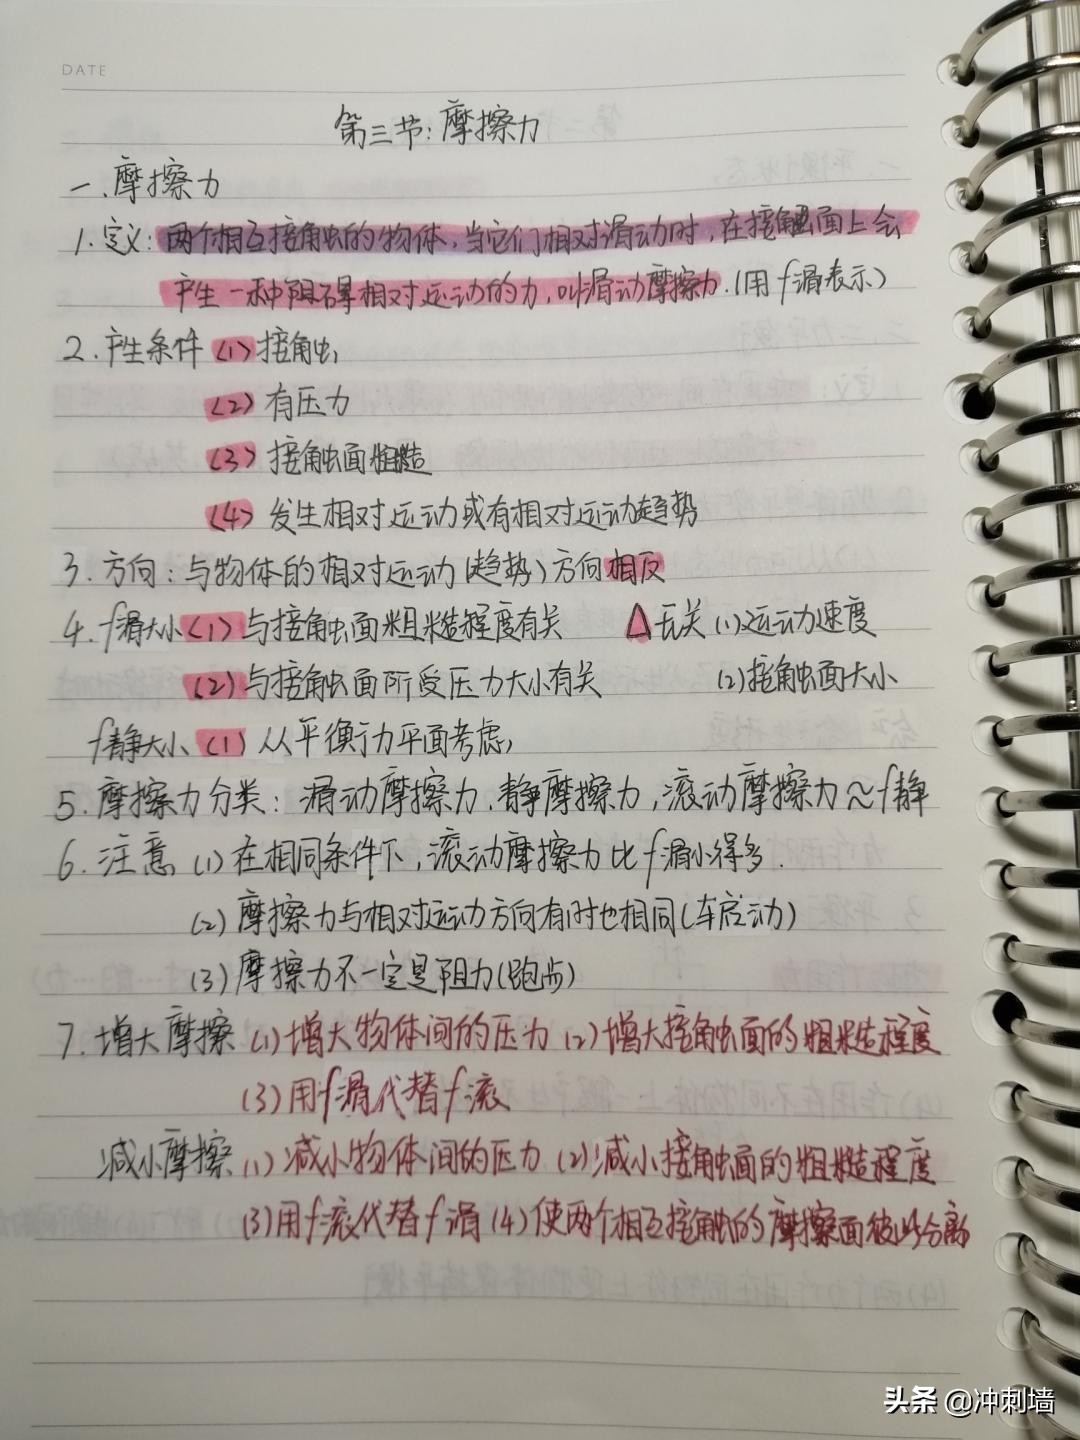 DATE
第三节:摩擦力
一.摩擦力
1.定义:两个相互接触的物体,当它们相对滑动时,在接触面上会
产生一种阻碍相对运动的力,叫滑动摩擦力.(用f滑表示)
2.产生条件 (1)接触
(2)有压力
(3)接触面粗糙
(4)发生相对运动或有相对运动趋势
3.方向:与物体的相对运动(趋势)方向相反
4.f滑大小(1)与接触面粗糙程度有关 △无关(1)运动速度
(2)与接触面所受压力大小有关 (2)接触面大小
f静大小(1)从平衡力平面考虑,
5.摩擦力分类:滑动摩擦力,静摩擦力,滚动摩擦力≈f静
6.注意(1)在相同条件下,滚动摩擦力比f滑小得多.
(2)摩擦力与相对运动方向有时也相同(车启动)
(3)摩擦力不一定是阻力(跑步)
7.增大摩擦(1)增大物体间的压力(2)增大接触面的粗糙程度
(3)用f滑代替f滚
减小摩擦(1)减小物体间的压力(2)减小接触面的粗糙程度
(3)用f滚代替f滑(4)使两个相互接触的摩擦面彼此分离
头条@冲刺墙